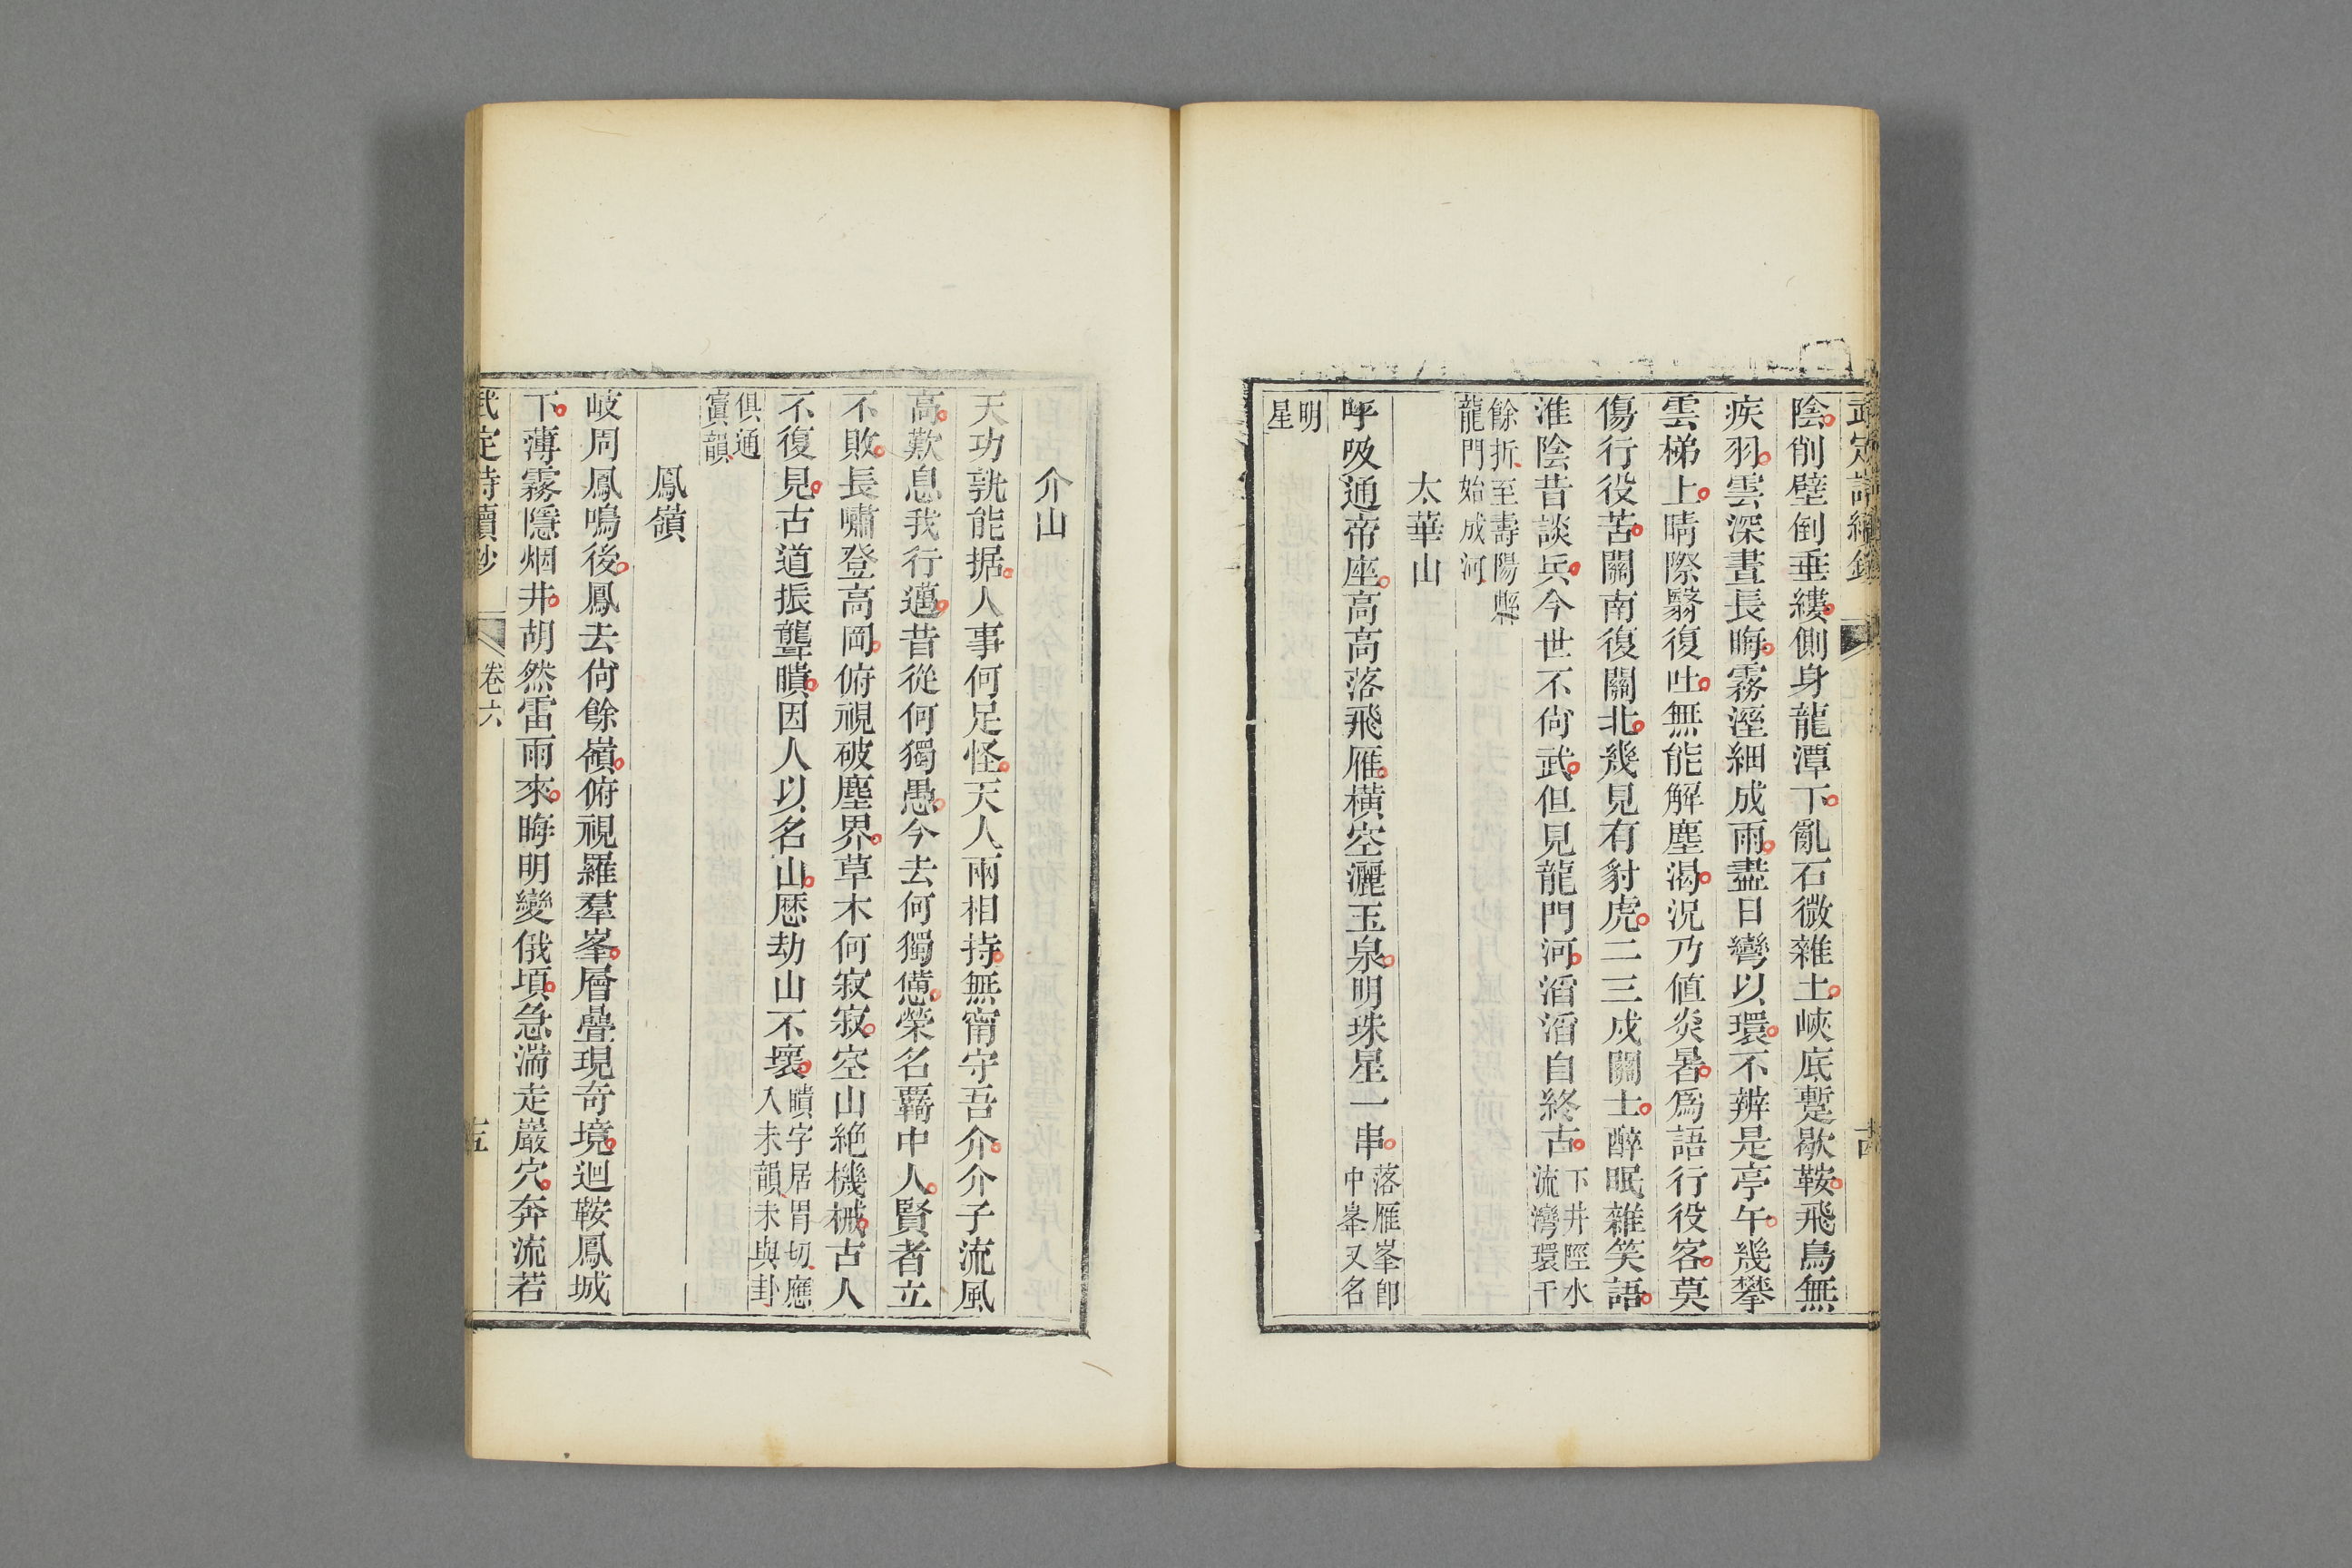 武定詩續鈔
陰削壁倒垂縷側身龍潭下亂石微雜土峽底蹔歇鞍飛鳥無
疾羽雲深晝長晦霧溼細成雨盡日彎以環不辨是亭午幾攀
雲梯上晴際翳復吐無能解塵渴況乃値炎暑爲語行役客莫
傷行役苦關南復關北幾見有豺虎二三戍關士醉眠雜笑語
淮陰昔談兵今世不尙武但見龍門河滔滔自終古下井陘水
流灣環千
餘折至壽陽縣
龍門始成河
太華山
呼吸通帝座高高落飛雁橫空灑玉泉明珠星一串落雁峯卽
中峯又名
明
星
介山
天功孰能据人事何足怪天人兩相持無甯守吾介介子流風
高歎息我行邁昔從何獨愚今去何獨憊榮名覊中人賢者立
不敗長嘯登高岡俯視破塵界草木何寂寂空山絶機械古人
不復見古道振聾聵因人以名山歷劫山不壞聵字居胃切應
入未韻未與卦
俱通
寘韻
鳳嶺
岐周鳳鳴後鳳去尙餘嶺俯視羅羣峯層疊現奇境迴鞍鳳城
下薄霧隱烟井胡然雷雨來晦明變俄頃急湍走巖穴奔流若
武定詩續鈔
卷六